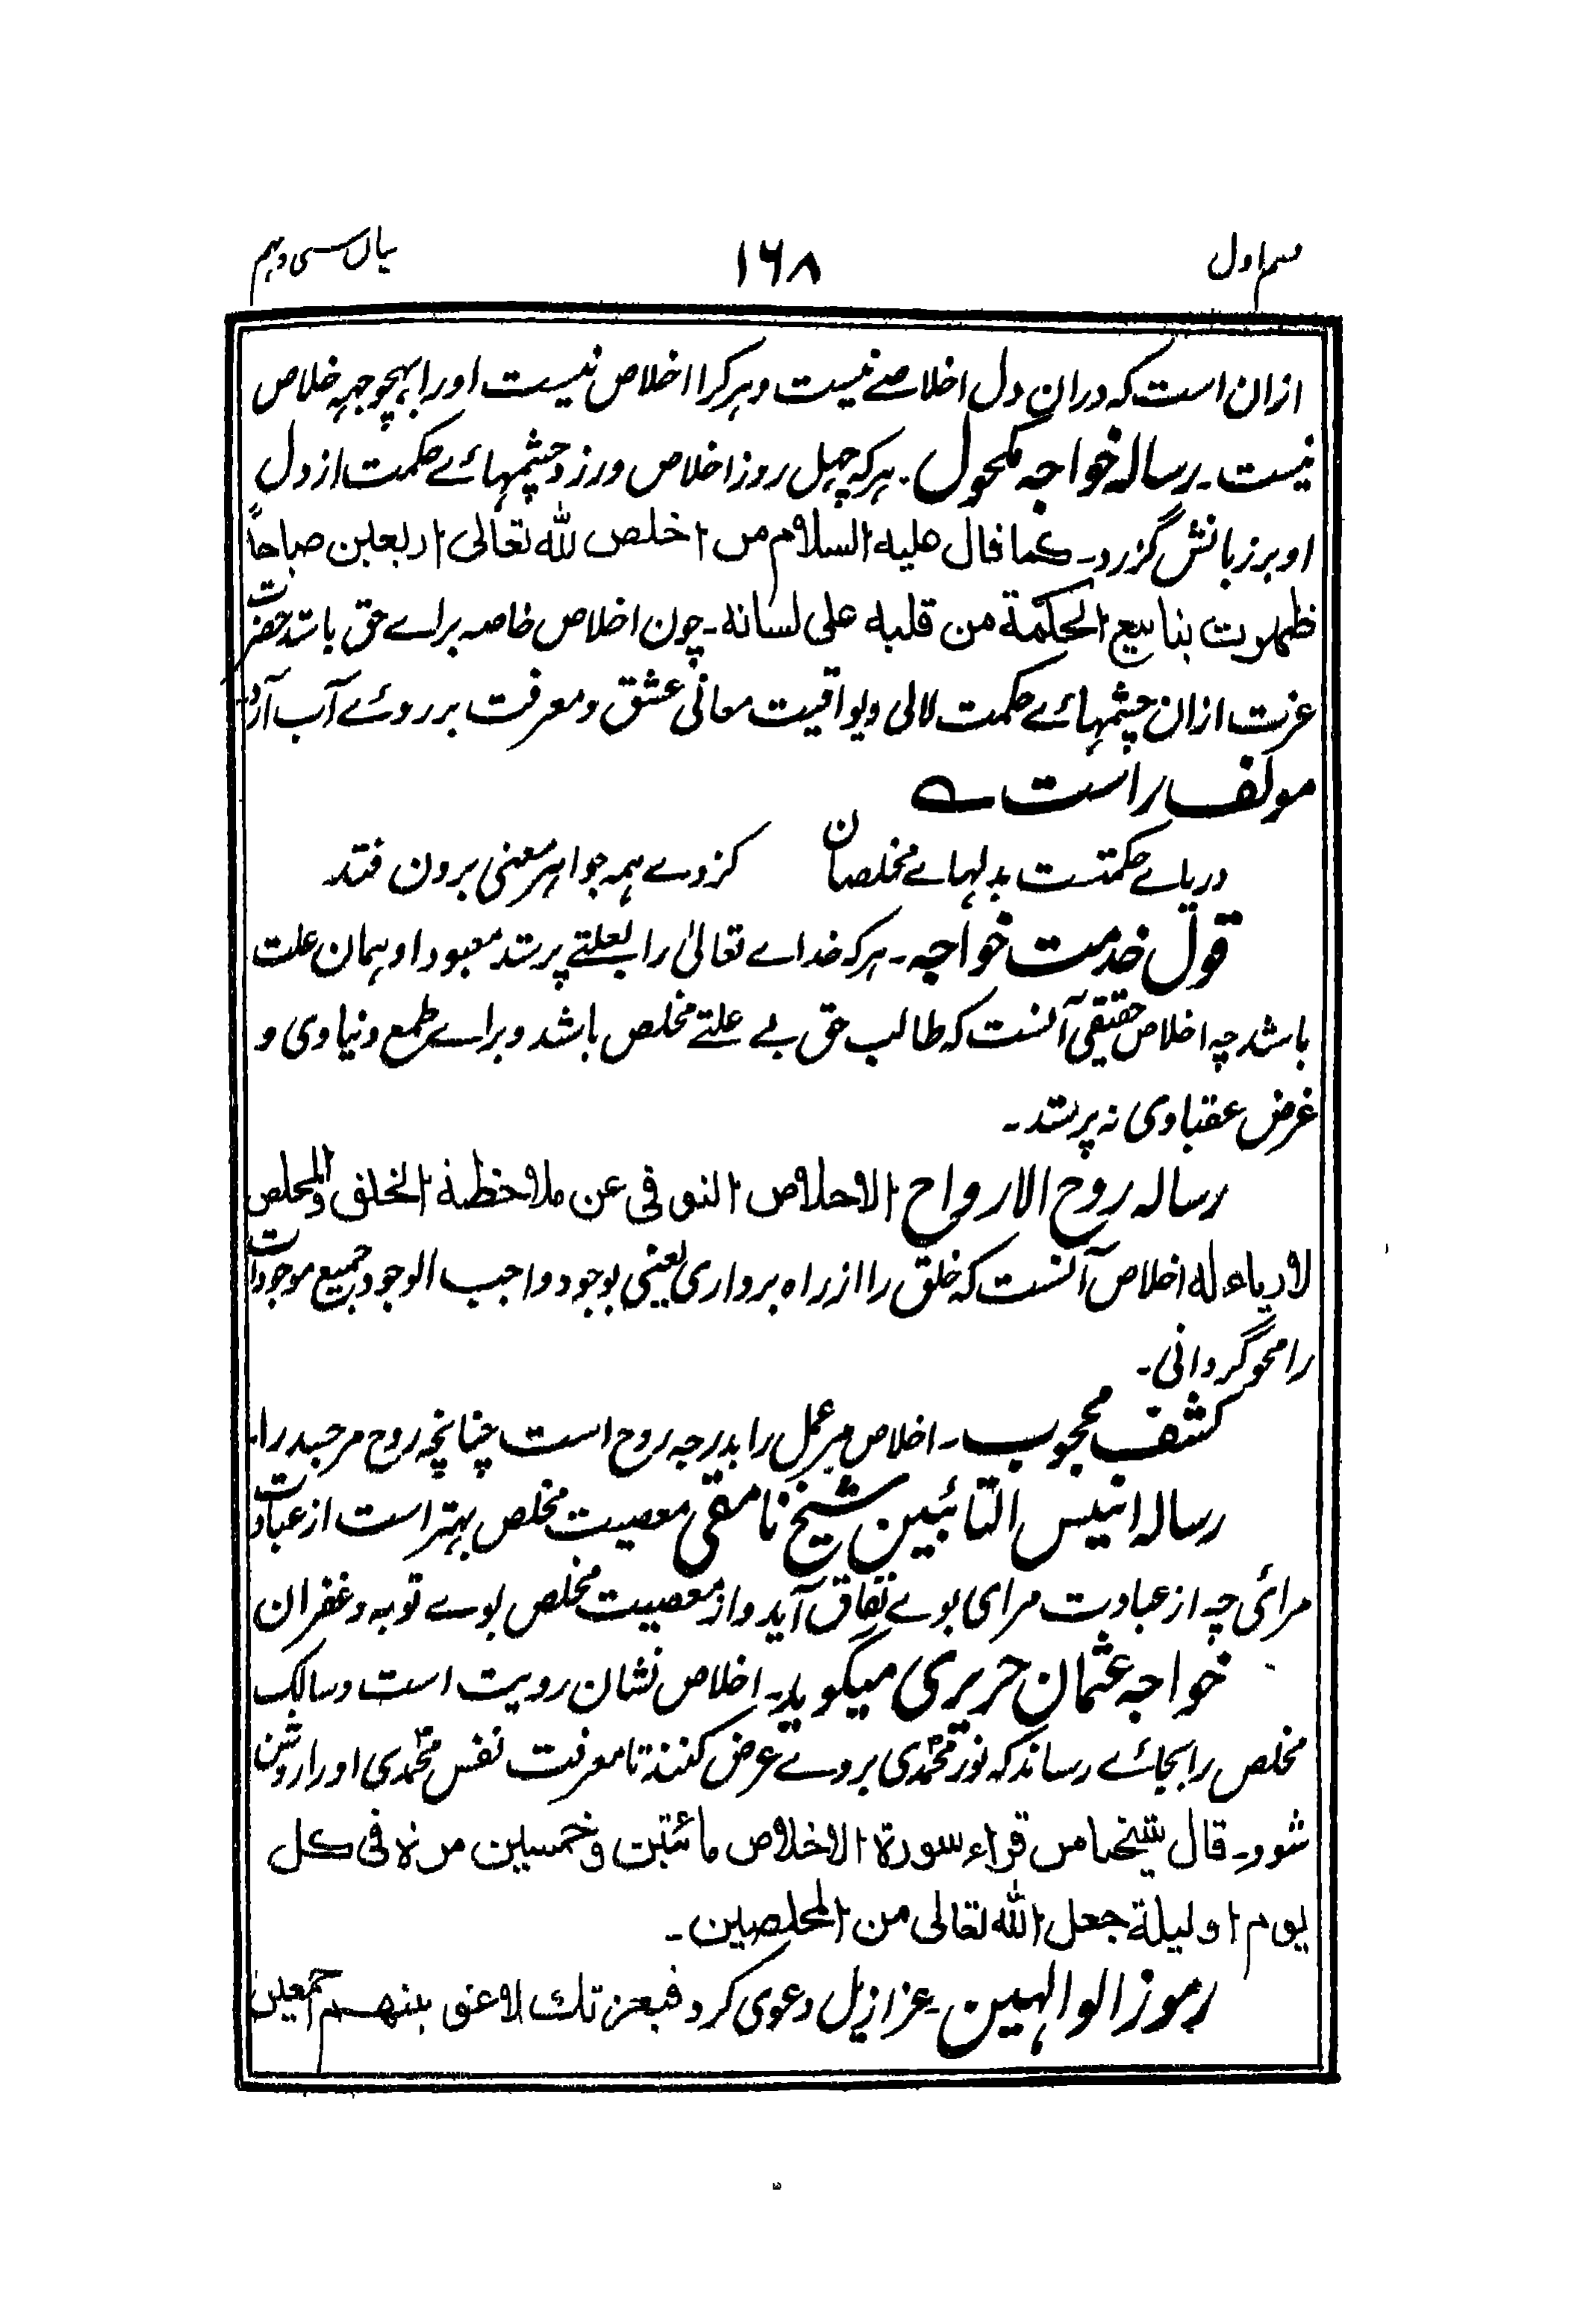 قسم اول ۱۶۸ بیان سی و نهم
ازان است که دران دل اخلاصے نیست و هر کرا اخلاص نیست اورا بهیچوجہ خلاص
نیست۔ رساله خواجه مکحول۔ هرکه چهل روز اخلاص ورزد چشمهائے حکمت از دل
او بر زبانش گزرد۔ کما قال علیه السلام من اخلص لله تعالی اربعین صباحاً
ظهرت ینابیع الحکمة من قلبه علی لسانه۔ چون اخلاص خاصه براے حق باشد حضرت
عزت ازان چشمهائے حکمت لالی و یواقیت معانی عشق و معرفت بر روئے آب آرد۔
مولف راست ے
دریاے حکمتست بدلهاے مخلصان کز وے همه جواهر معنی برون فتد
قول خدمت خواجه۔ هرکه خداے تعالیٰ را بعلتے پرستد معبود او همان علت
باشد چه اخلاص حقیقی آنست که طالب حق بے علتے مخلص باشد و براے طمع دنیاوی و
غرض عقباوی نه پرستد۔
رساله روح الارواح الاخلاص التوقی عن ملاحظة الخلق والمخلص
لا ریاء له اخلاص آنست که خلق را از راه برداری یعنی بوجود واجب الوجود جمیع موجودات
را محو گردانی۔
کشف محجوب۔ اخلاص مر عمل را بدرجه روح است چنانچه روح مر جسد را۔
رساله انیس التائبین شیخ نامقی معصیت مخلص بهتر است از عبادت
مرائی چه از عبادت مرای بوے نفاق آید و از معصیت مخلص بوے توبه و غفران
خواجه عثمان حریری میگوید۔ اخلاص نشان رویت است و سالک
مخلص را بجائے رساند که نور محمدی بروے عرض کنند تا معرفت نفس محمدی اورا روشن
شود۔ قال شیخنا من قراء سورة الاخلاص مائتین و خمسین مرة فی کل
یوم او لیلة جعل الله تعالی من المخلصین۔
رموز الوالهین۔ عزازیل دعوی کرد فبعزتک لاغوینهم اجمعین